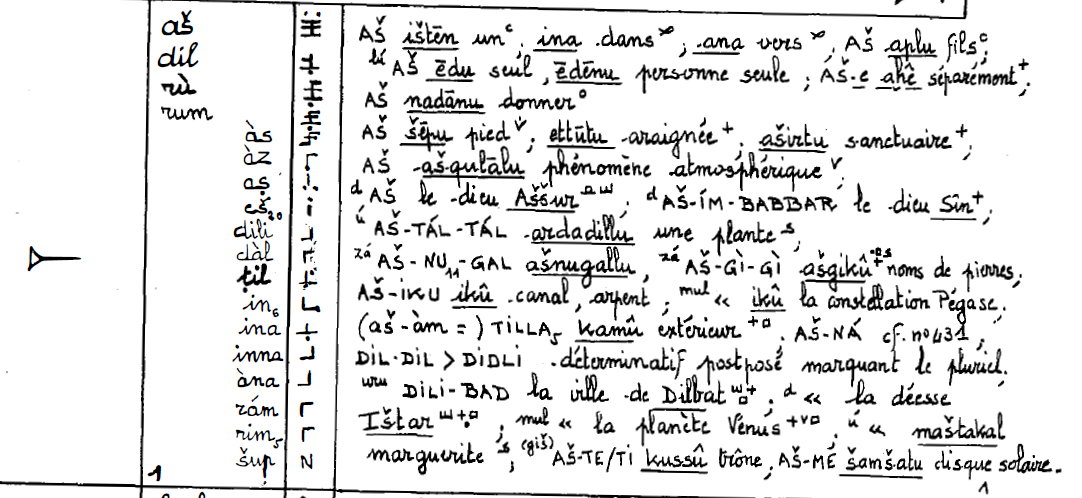 aš
dil
rù
rum
áš
àṣ
eš₂₀
dili
dàl
ṭil
in₆
ina
inna
àna
rám
rim₅
šup
1
AŠ ištēn un, ina dans, ana vers, AŠ aplu fils,
AŠ ēdu seul, ēdēnu personne seule; AŠ-e ahê séparément,
AŠ nadānu donner
AŠ šēpu pied; ettūtu araignée, aširtu sanctuaire,
AŠ ašqulālu phénomène atmosphérique
ᵈAŠ le dieu Aššur; ᵈAŠ-ÍM-BABBAR le dieu Sîn,
ᵘAŠ-TÁL-TÁL ardadillu une plante,
ᶻᵃAŠ-NU₁₁-GAL ašnugallu, ᶻᵃAŠ-GÌ-GÌ ašgikû noms de pierres,
AŠ-IKU ikû canal, arpent, ᵐᵘˡ « ikû la constellation Pégase.
(aš-àm =) TILLA₅ kamû extérieur, AŠ-NÁ cf. n° 431,
DIL-DIL > DIDLI déterminatif postposé marquant le pluriel.
ᵘʳᵘ DILI-BAD la ville de Dilbat, ᵈ « la déesse
Ištar, ᵐᵘˡ « la planète Vénus, ᵘ « maštakal
marguerite, (giš) AŠ-TE/TI kussû trône, AŠ-ME šamšatu disque solaire.